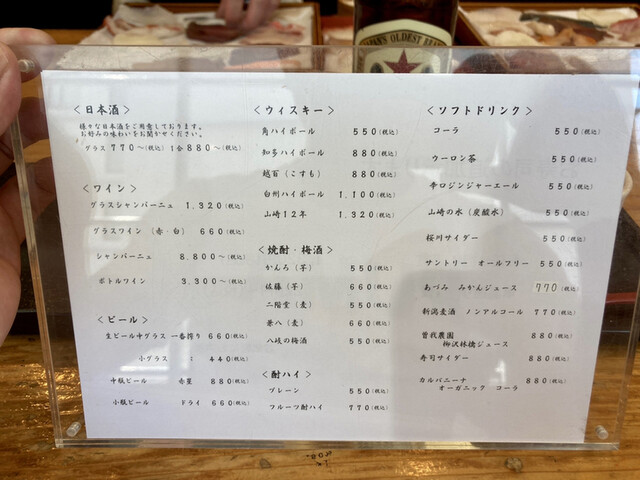 JAPAN'S OLDEST BRAND
<日本酒>
様々な日本酒をご用意しております。
お好みの味わいをお聞かせください。
グラス 770~(税込) 1合 880~(税込)
<ワイン>
グラスシャンパーニュ 1,320(税込)
グラスワイン (赤・白) 660(税込)
シャンパーニュ 8.800~(税込)
ボトルワイン 3,300~(税込)
<ビール>
生ビール中グラス 一番搾り 660(税込)
小グラス 〃 440(税込)
中瓶ビール 赤星 880(税込)
小瓶ビール ドライ 660(税込)
<ウィスキー>
角ハイボール 550(税込)
知多ハイボール 880(税込)
越百 (こすも) 880(税込)
白州ハイボール 1,100(税込)
山崎12年 1,320(税込)
<焼酎・梅酒>
かんろ (芋) 550(税込)
佐藤 (芋) 660(税込)
二階堂 (麦) 550(税込)
兼八 (麦) 660(税込)
八岐の梅酒 550(税込)
<酎ハイ>
プレーン 550(税込)
フルーツ酎ハイ 770(税込)
<ソフトドリンク>
コーラ 550(税込)
ウーロン茶 550(税込)
辛口ジンジャーエール 550(税込)
山崎の水 (炭酸水) 550(税込)
桜川サイダー 550(税込)
サントリー オールフリー 550(税込)
あづみ みかんジュース 770(税込)
新潟麦酒 ノンアルコール 770(税込)
曽我農園 880(税込)
柳沢林檎ジュース
寿司サイダー 880(税込)
カルバニーナ 880(税込)
オーガニック コーラ